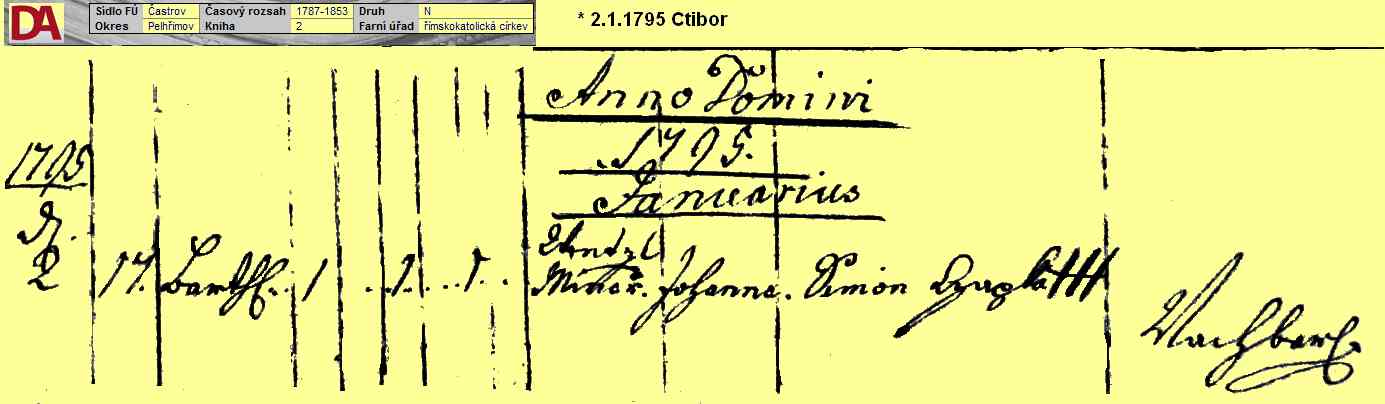 Sídlo FÚ Častrov Časový rozsah 1787-1853 Druh N
Okres Pelhřimov Kniha 2 Farní úřad římskokatolická církev
* 2.1.1795 Ctibor
Anno Domini
1795
1795.
Januarius
d.
2 17. Barthl. 1 1 1 Johanna. Simon
Nachbar